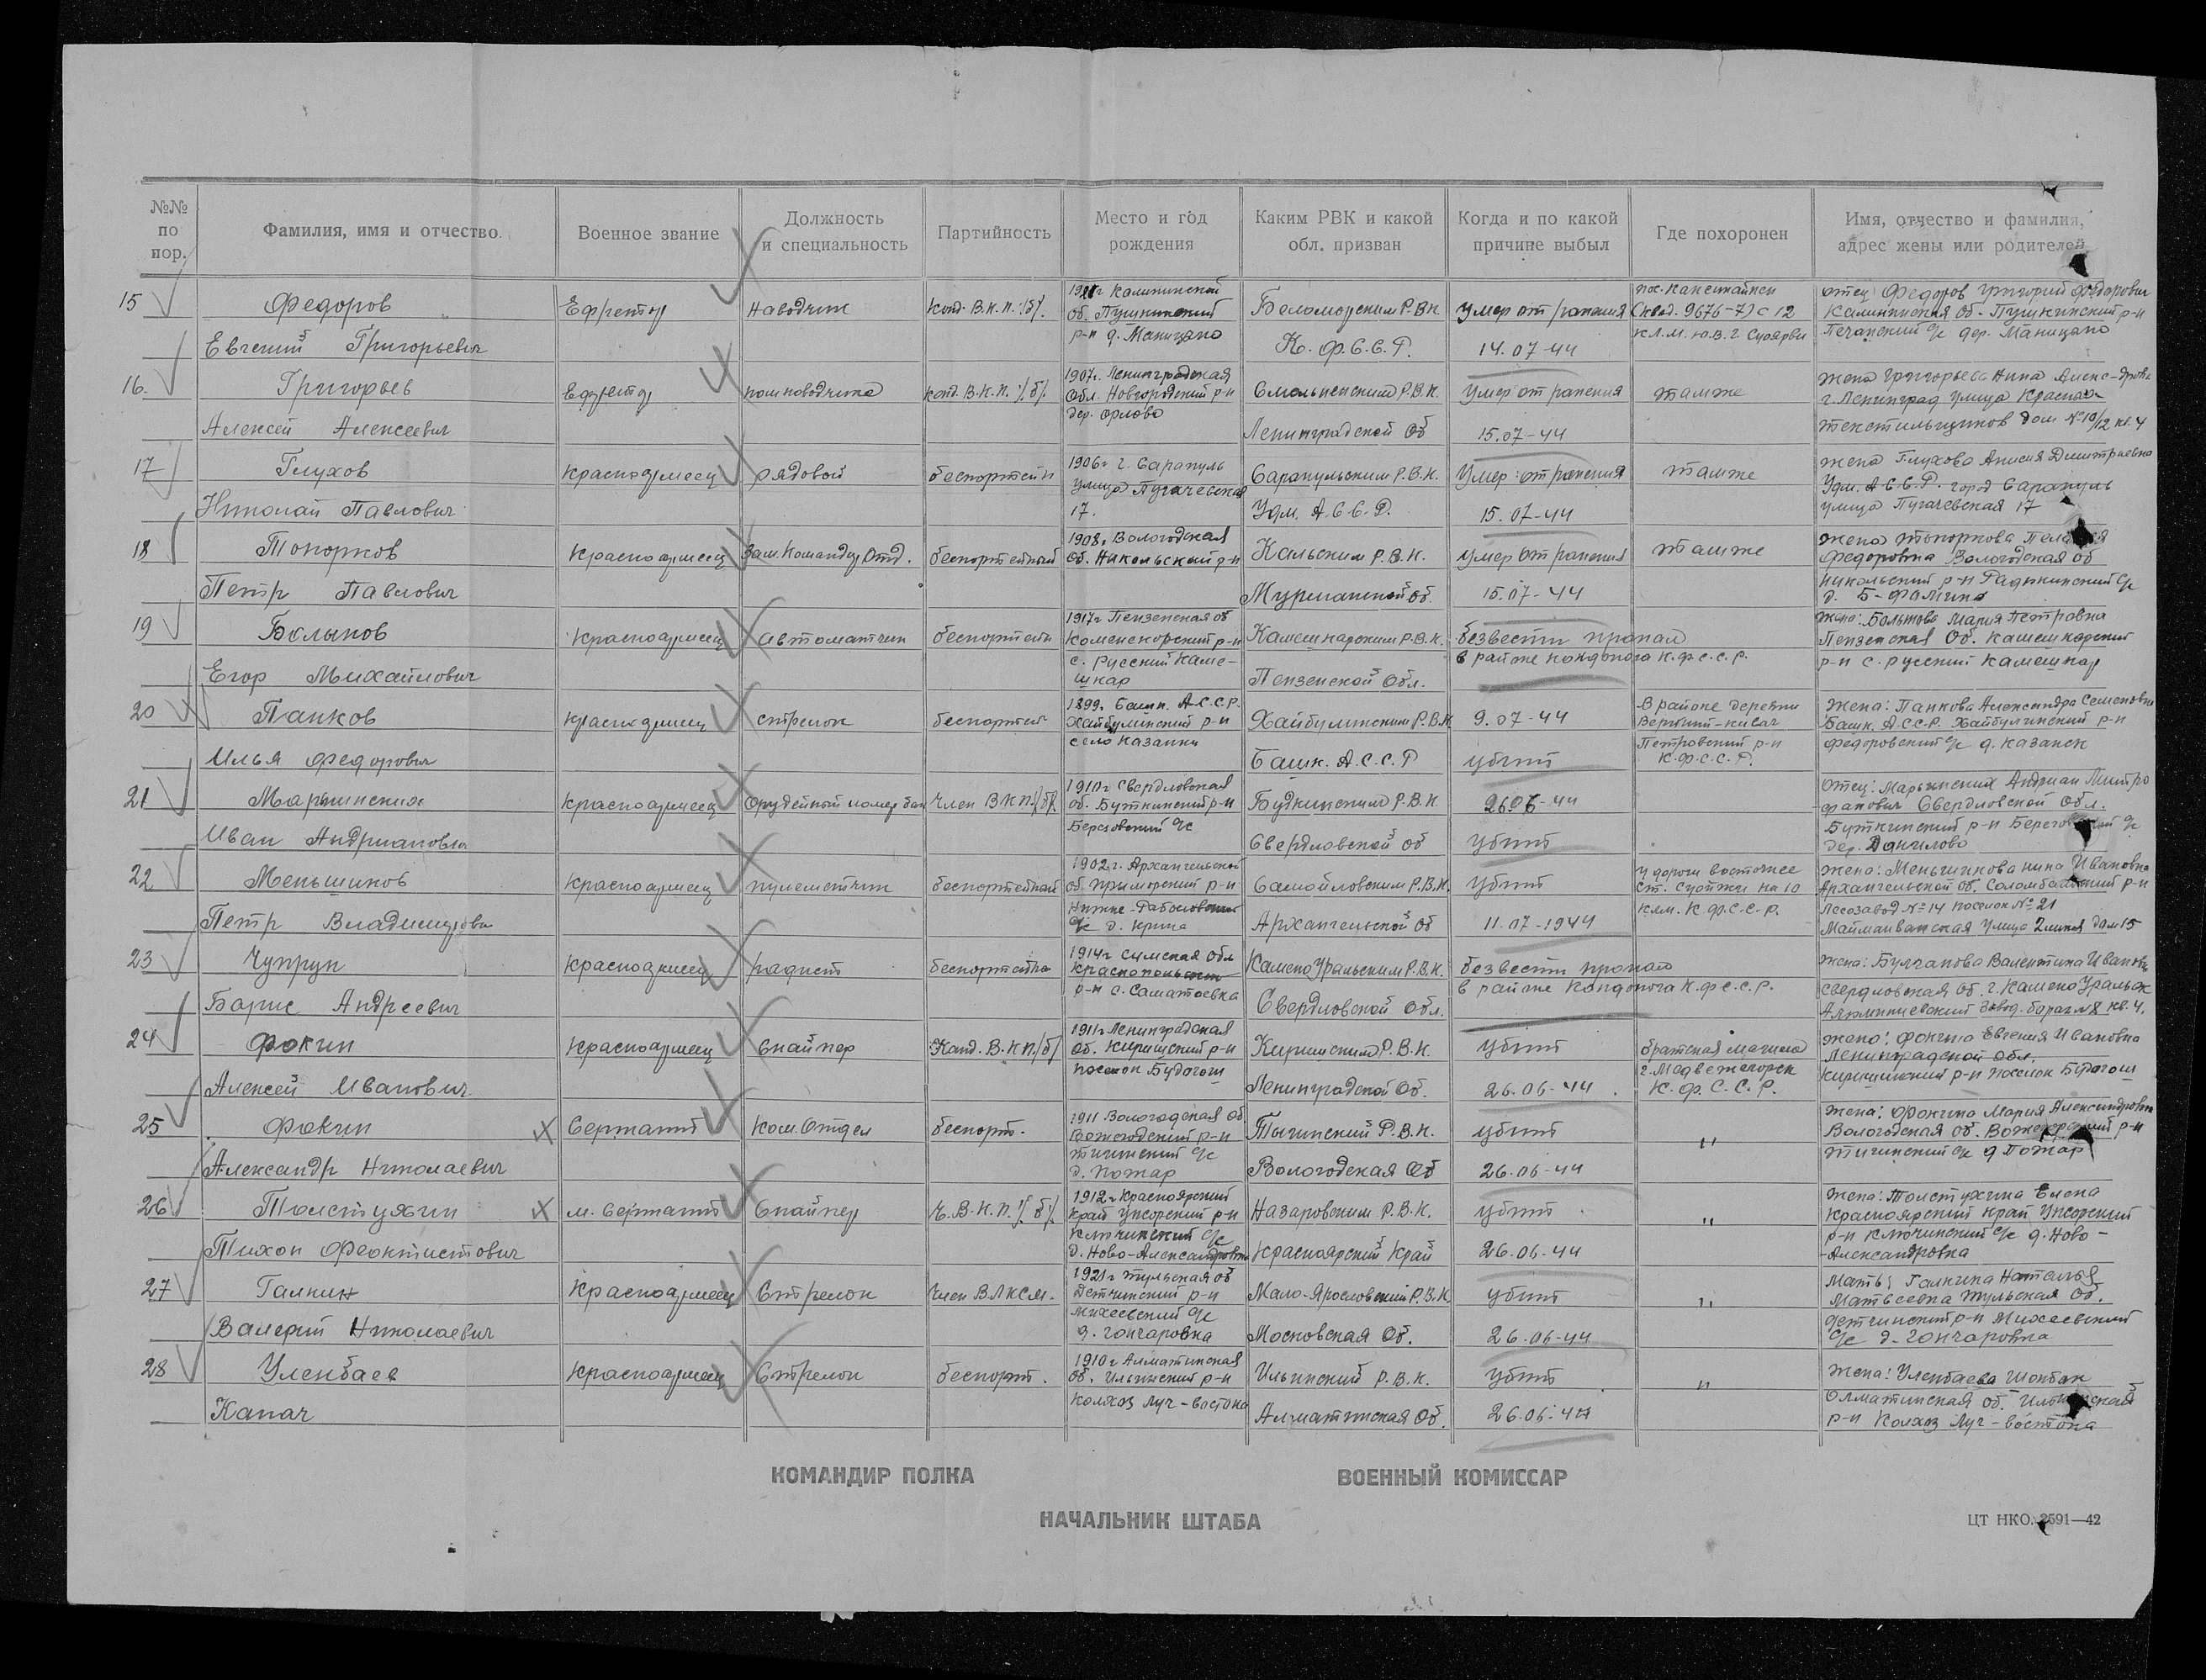 №№ по пор.
Фамилия, имя и отчество.
Военное звание
Должность и специальность
Партийность
Место и год рождения
Каким РВК и какой обл. призван
Когда и по какой причине выбыл
Где похоронен
Имя, отчество и фамилия, адрес жены или родителей
15 Федоров Ефрейтор Наводчик Канд. В.К.П./б/.
Евгений Григорьевич
Калининской
об. Пушкинский
р-н д.
Беломорским Р.В.К.
К. Ф. С. С. Р.
Умер от ранения
14.07-44
отец Федоров Григорий Федорович
Калининская об. Пушкинский р-н
16. Григорьев Ефрейтор пом наводчика канд. В.К.П./б/.
Алексей Алексеевич
1907г. Ленинградская
обл. Новгородский р-н
дер. Орлово
Смольненским Р.В.К.
Ленинградской об
Умер от ранения
15.07-44
там же
Жена Григорьева Нина Алекс-дровна
г. Ленинград улица Красная
текстильщиков дом №10/12 кв. 4
17 Глухов Красноармеец рядовой беспартейн
Николай Павлович
1906г г. Сарапуль
улица Пугачевская
17.
Сарапульским Р.В.К.
Удм. А.С.С.Р.
Умер от ранения
15.07-44
там же
жена Глухова Анисия Дмитриевна
Удм. А.С.С.Р. город Сарапуль
улица Пугачевская 17
18 Топорков Красноармеец Зам. Командир Отд. беспартейный
Петр Павлович
1908г Вологодская
об. Никольский р-н
Кольским Р.В.К.
Мурманской об.
умер от ранения
15.07-44
там же
жена Топоркова
Федоровна Вологодская об
Никольский р-н
19 Красноармеец автоматчик беспартейн
Егор Михайлович
1917г Пензенская об
с. Русский Каме-
шкар
Р.В.К.
Пензенской Обл.
безвести пропал
в районе Кондопога К.Ф.С.С.Р.
Мария Петровна
Пензенская Об.
р-н с. русский Камешкар
20 Панков Красноармеец стрелок беспартейн
Илья Федорович
1899г. Башк. А.С.С.Р.
Хайбулинский р-н
село Казанка
Хайбулинским Р.В.К
Башк. А.С.С.Р
9.07-44
убит
В районе деревни
Верхний-кивач
Петровский р-н
К.Ф.С.С.Р.
Жена: Панкова Александра Семеновна
Башк. А.С.С.Р. Хайбулинский р-н
Федоровский с/с д. Казанск
21 Марьинских Красноармеец Орудейный номер бат Член ВКП./б/.
Иван Андрианович
1910г Свердловская
об. Буткинский р-н
Березовский с/с
Будкинским Р.В.К
Свердловской об
2606-44
убит
Отец: Марьинских Андриан Митро
фанович Свердловской Обл.
Буткинский р-н
дер. Данилово
22 Меньшиков Красноармеец пулеметчик беспартейный
Петр Владимирович
1902г. Архангельской
об. Приморский р-н
Р.В.К.
Архангельской об
убит
11.07-1944
у дороги восточнее
на 10
клм. К.Ф.С.С.Р.
жена: Меньшикова Нина Ивановна
Архангельской об. р-н
Лесозавод №14 поселок №21
улица 2 линия дом 15
23 Чупрун Красноармеец радист беспартейн
Борис Андреевич
1914г Сумская обл
р-н с.
Камено Уральским Р.В.К.
Свердловской Обл.
безвести пропал
в районе Кондопога К.Ф.С.С.Р.
Жена: Валентина Ивановна
Свердловская об. г. Камено Уральск
24 Фокин Красноармеец Снайпер Канд. В.КП./б/
Алексей Иванович
1911г Ленинградская
об. Киришский р-н
поселок Будогощ
Киришским Р.В.К.
Ленинградской Об.
убит
26.06-44
братская могила
г. Медвежегорск
К.Ф.С.С.Р.
Жена: Фокина Евгения Ивановна
Ленинградской обл.
Киришский р-н поселок Будогощ
25 Фокин Сержант Ком. Отдел беспарт.
Александр Николаевич
1911 Вологодская об
Вожегодский р-н
тигинский с/с
д. Пожар
Тигинский Р.В.К.
Вологодская Об
убит
26.06-44
"
Жена: Фокина Мария Александровна
Вологодская об. р-н
тигинский с/с д Пожар
26 Толстухин м. Сержант Снайпер Ч.В.К.П./б/.
Тихон Феоктистович
1912г Красноярский
край Ужурский р-н
Ключинский с/с
д. Ново-Александровка
Назаровским Р.В.К.
Красноярский Край
убит
26.06-44
"
Жена: Толстухина Елена
Красноярский край Ужурский
р-н Ключинский с/с д. Ново-
-Александровка
27 Галкин Красноармеец Стрелок Член ВЛКСМ.
Валерий Николаевич
1921г Тульская об
Детчинский р-н
Михеевский с/с
д. Гончаровка
Мало-Ярославский Р.В.К.
Московская Об.
убит
26.06-44
"
Мать: Галкина Наталья
Матвеевна Тульская Об.
Детчинский р-н Михеевский
с/с д. Гончаровка
28 Уленбаев Красноармеец Стрелок беспарт.
Капач
1910г Алматинская
об. Илийнский р-н
колхоз Луч-востока
Илийнский Р.В.К.
Алматинская Об.
убит
26.06-44
"
Жена: Уленбаева
Олматинская об.
р-н Колхоз Луч-востока
КОМАНДИР ПОЛКА
ВОЕННЫЙ КОМИССАР
НАЧАЛЬНИК ШТАБА
ЦТ НКО. 2591—42